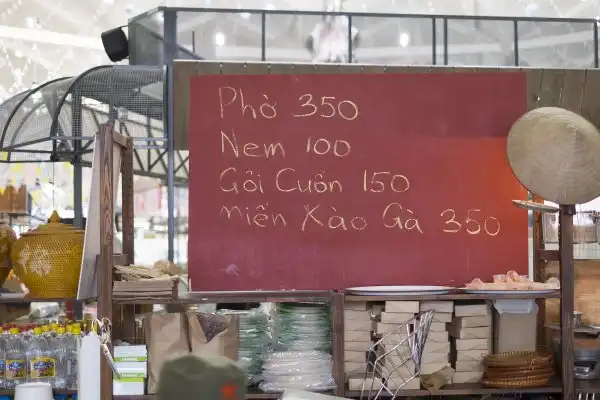 Phở 350
Nem 100
Gỏi Cuốn 150
miến Xào Gà 350